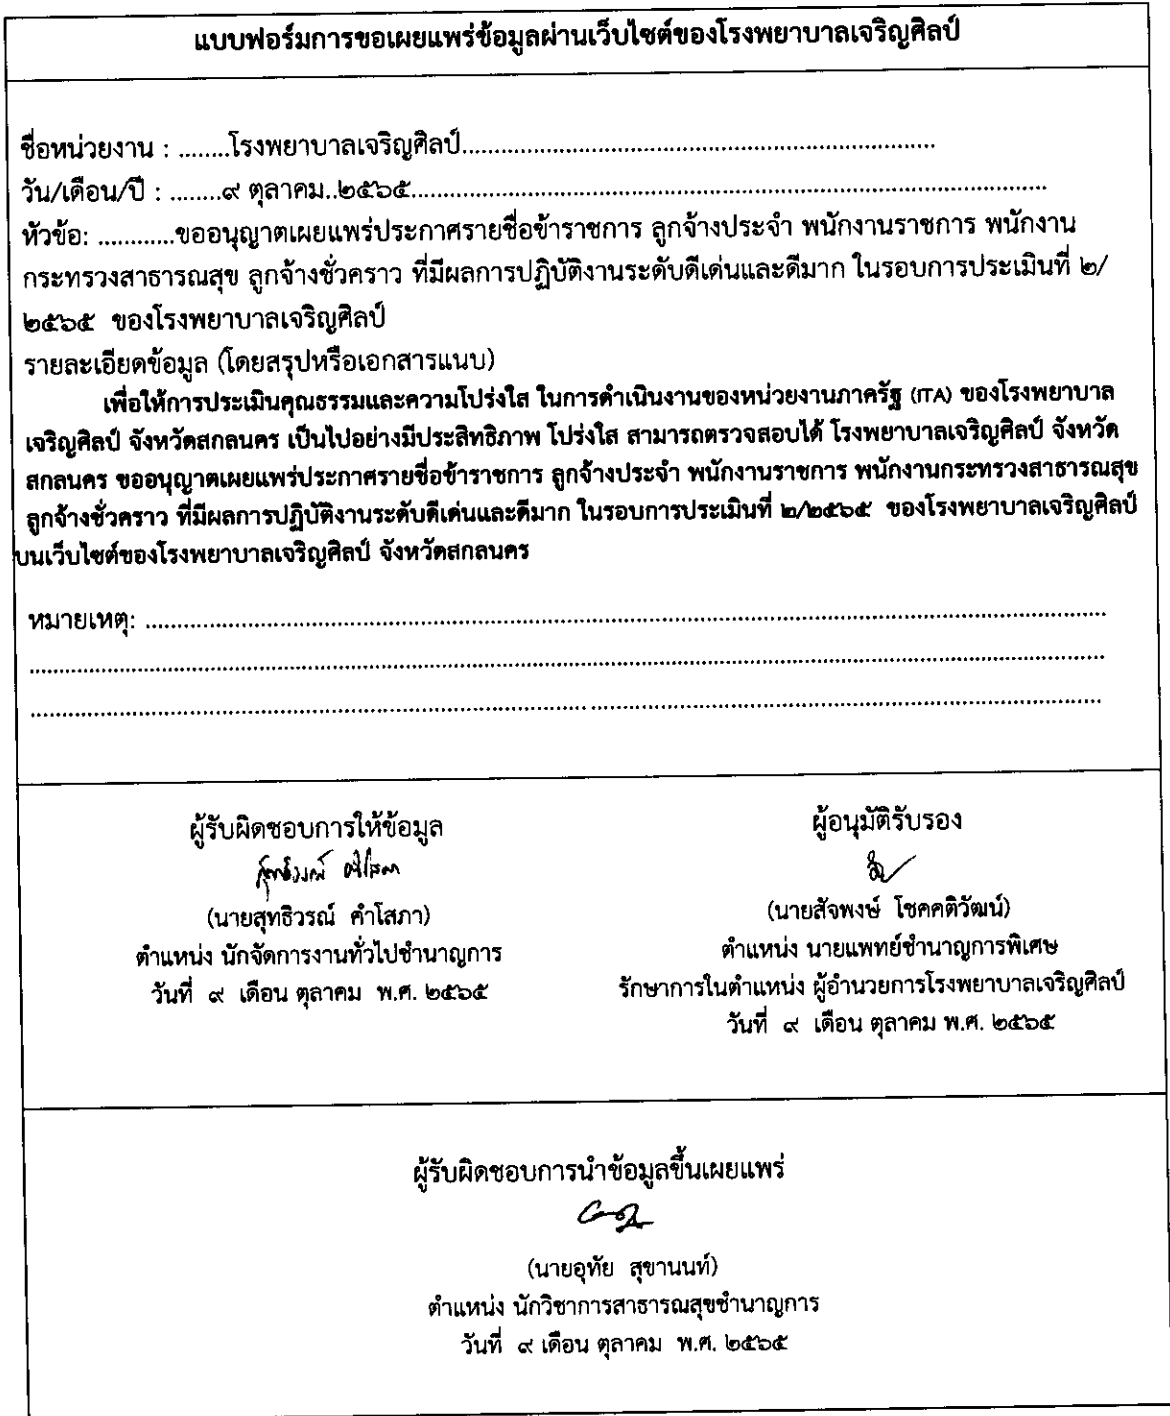 แบบฟอร์มการขอเผยแพร่ข้อมูลผ่านเว็บไซต์ของโรงพยาบาลเจริญศิลป์
ชื่อหน่วยงาน : ........โรงพยาบาลเจริญศิลป์.........................................................................
วัน/เดือน/ปี : ........๙ ตุลาคม..๒๕๖๕..................................................................................................
หัวข้อ: ............ขออนุญาตเผยแพร่ประกาศรายชื่อข้าราชการ ลูกจ้างประจำ พนักงานราชการ พนักงาน
กระทรวงสาธารณสุข ลูกจ้างชั่วคราว ที่มีผลการปฏิบัติงานระดับดีเด่นและดีมาก ในรอบการประเมินที่ ๒/
๒๕๖๕ ของโรงพยาบาลเจริญศิลป์
รายละเอียดข้อมูล (โดยสรุปหรือเอกสารแนบ)
เพื่อให้การประเมินคุณธรรมและความโปร่งใส ในการดำเนินงานของหน่วยงานภาครัฐ (ITA) ของโรงพยาบาล
เจริญศิลป์ จังหวัดสกลนคร เป็นไปอย่างมีประสิทธิภาพ โปร่งใส สามารถตรวจสอบได้ โรงพยาบาลเจริญศิลป์ จังหวัด
สกลนคร ขออนุญาตเผยแพร่ประกาศรายชื่อข้าราชการ ลูกจ้างประจำ พนักงานราชการ พนักงานกระทรวงสาธารณสุข
ลูกจ้างชั่วคราว ที่มีผลการปฏิบัติงานระดับดีเด่นและดีมาก ในรอบการประเมินที่ ๒/๒๕๖๕ ของโรงพยาบาลเจริญศิลป์
บนเว็บไซต์ของโรงพยาบาลเจริญศิลป์ จังหวัดสกลนคร
หมายเหตุ: ......................................................................................................................................................
......................................................................................................................................................................
......................................................................................................................................................................
ผู้รับผิดชอบการให้ข้อมูล
(นายสุทธิวรณ์ คำโสภา)
ตำแหน่ง นักจัดการงานทั่วไปชำนาญการ
วันที่ ๙ เดือน ตุลาคม พ.ศ. ๒๕๖๕
ผู้อนุมัติรับรอง
(นายสัจพงษ์ โชคคติวัฒน์)
ตำแหน่ง นายแพทย์ชำนาญการพิเศษ
รักษาการในตำแหน่ง ผู้อำนวยการโรงพยาบาลเจริญศิลป์
วันที่ ๙ เดือน ตุลาคม พ.ศ. ๒๕๖๕
ผู้รับผิดชอบการนำข้อมูลขึ้นเผยแพร่
(นายอุทัย สุขานนท์)
ตำแหน่ง นักวิชาการสาธารณสุขชำนาญการ
วันที่ ๙ เดือน ตุลาคม พ.ศ. ๒๕๖๕